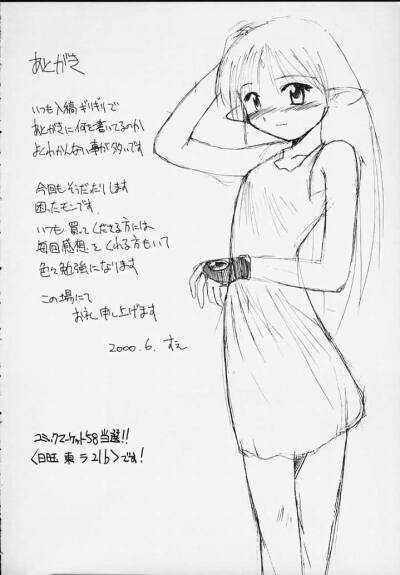 あとがき
いつも入稿ギリギリで
あとがきに何を書いてるのか
よくわかんない事が多いです
今回もそうだったりします
困ったモンです。
いつも買ってくださる方には
毎回感想をくれる方もいて
色々勉強になります
この場にて
お礼申し上げます
2000.6. すえ
コミックマーケット58当選!!
<日曜 東ラ21b>です!